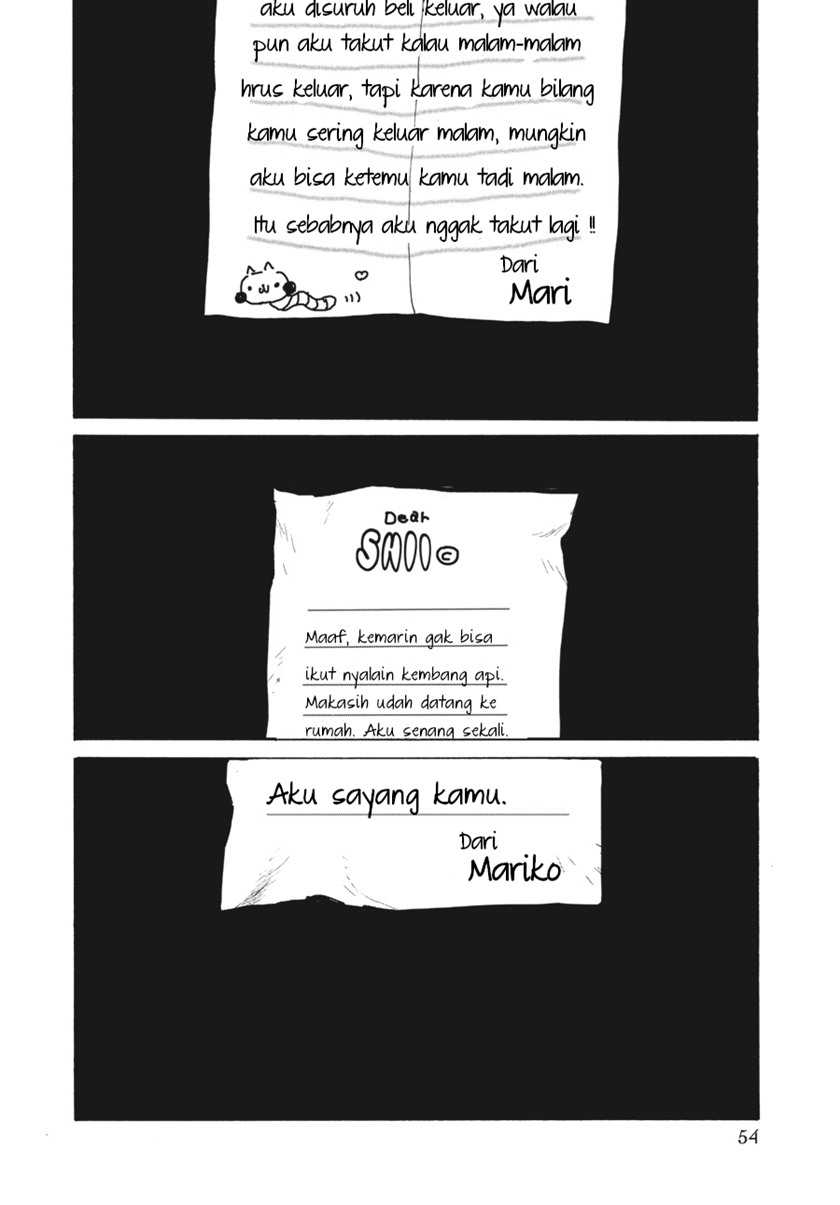 aku disuruh beli keluar, ya walau
pun aku takut kalau malam-malam
hrus keluar, tapi karena kamu bilang
kamu sering keluar malam, mungkin
aku bisa ketemu kamu tadi malam.
Itu sebabnya aku nggak takut lagi !!
Dari
Mari
Dear
SHII©
Maaf, kemarin gak bisa
ikut nyalain kembang api.
Makasih udah datang ke
rumah. Aku senang sekali.
Aku sayang kamu.
Dari
Mariko
54